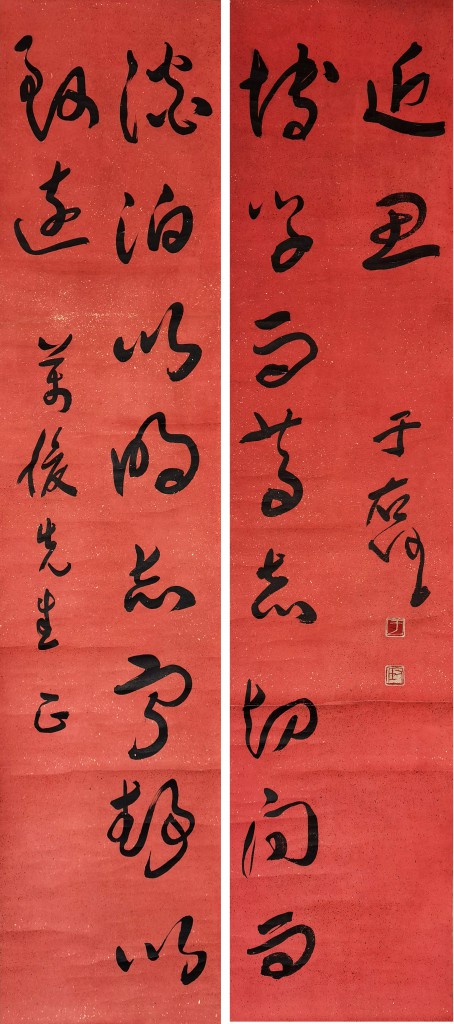 澹泊以明志寧靜以
致遠
萬俊先生正
博學而篤志切問而
近思
于右任